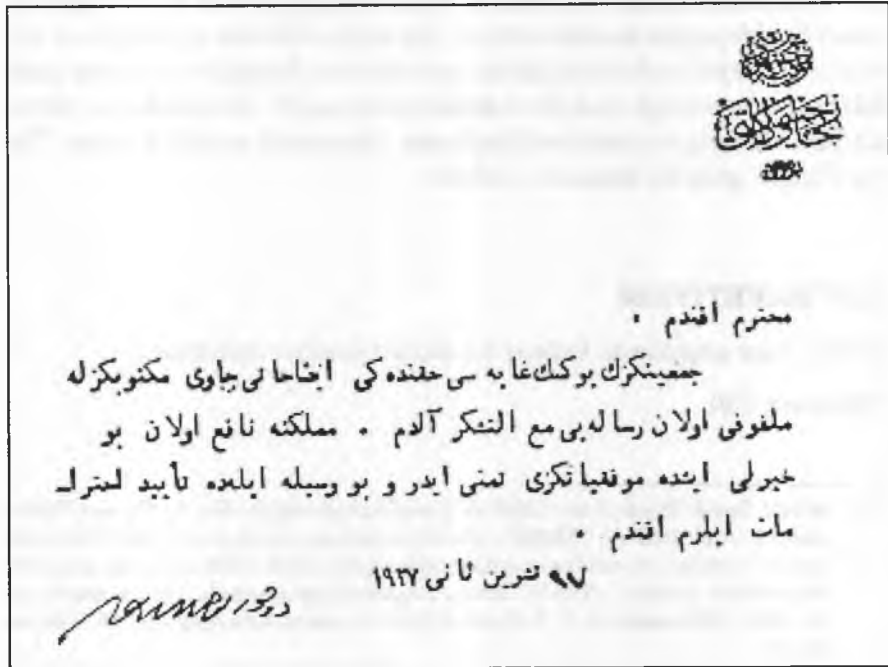 محترم افندم .
جمعیتكزك بوكنك غایه سی حقنده كی ایضاحاتی حاوی مكتوبكزله
ملفوفی اولان رساله یی مع التشكر آلدم . مملكته نافع اولان بو
خیرلی ایشده موفقیاتكزی تمنی ایدر و بو وسیله ایلهده تأیید احترا
مات ایلرم افندم .
تشرین ثانی ١٩٢٧
دوقتور